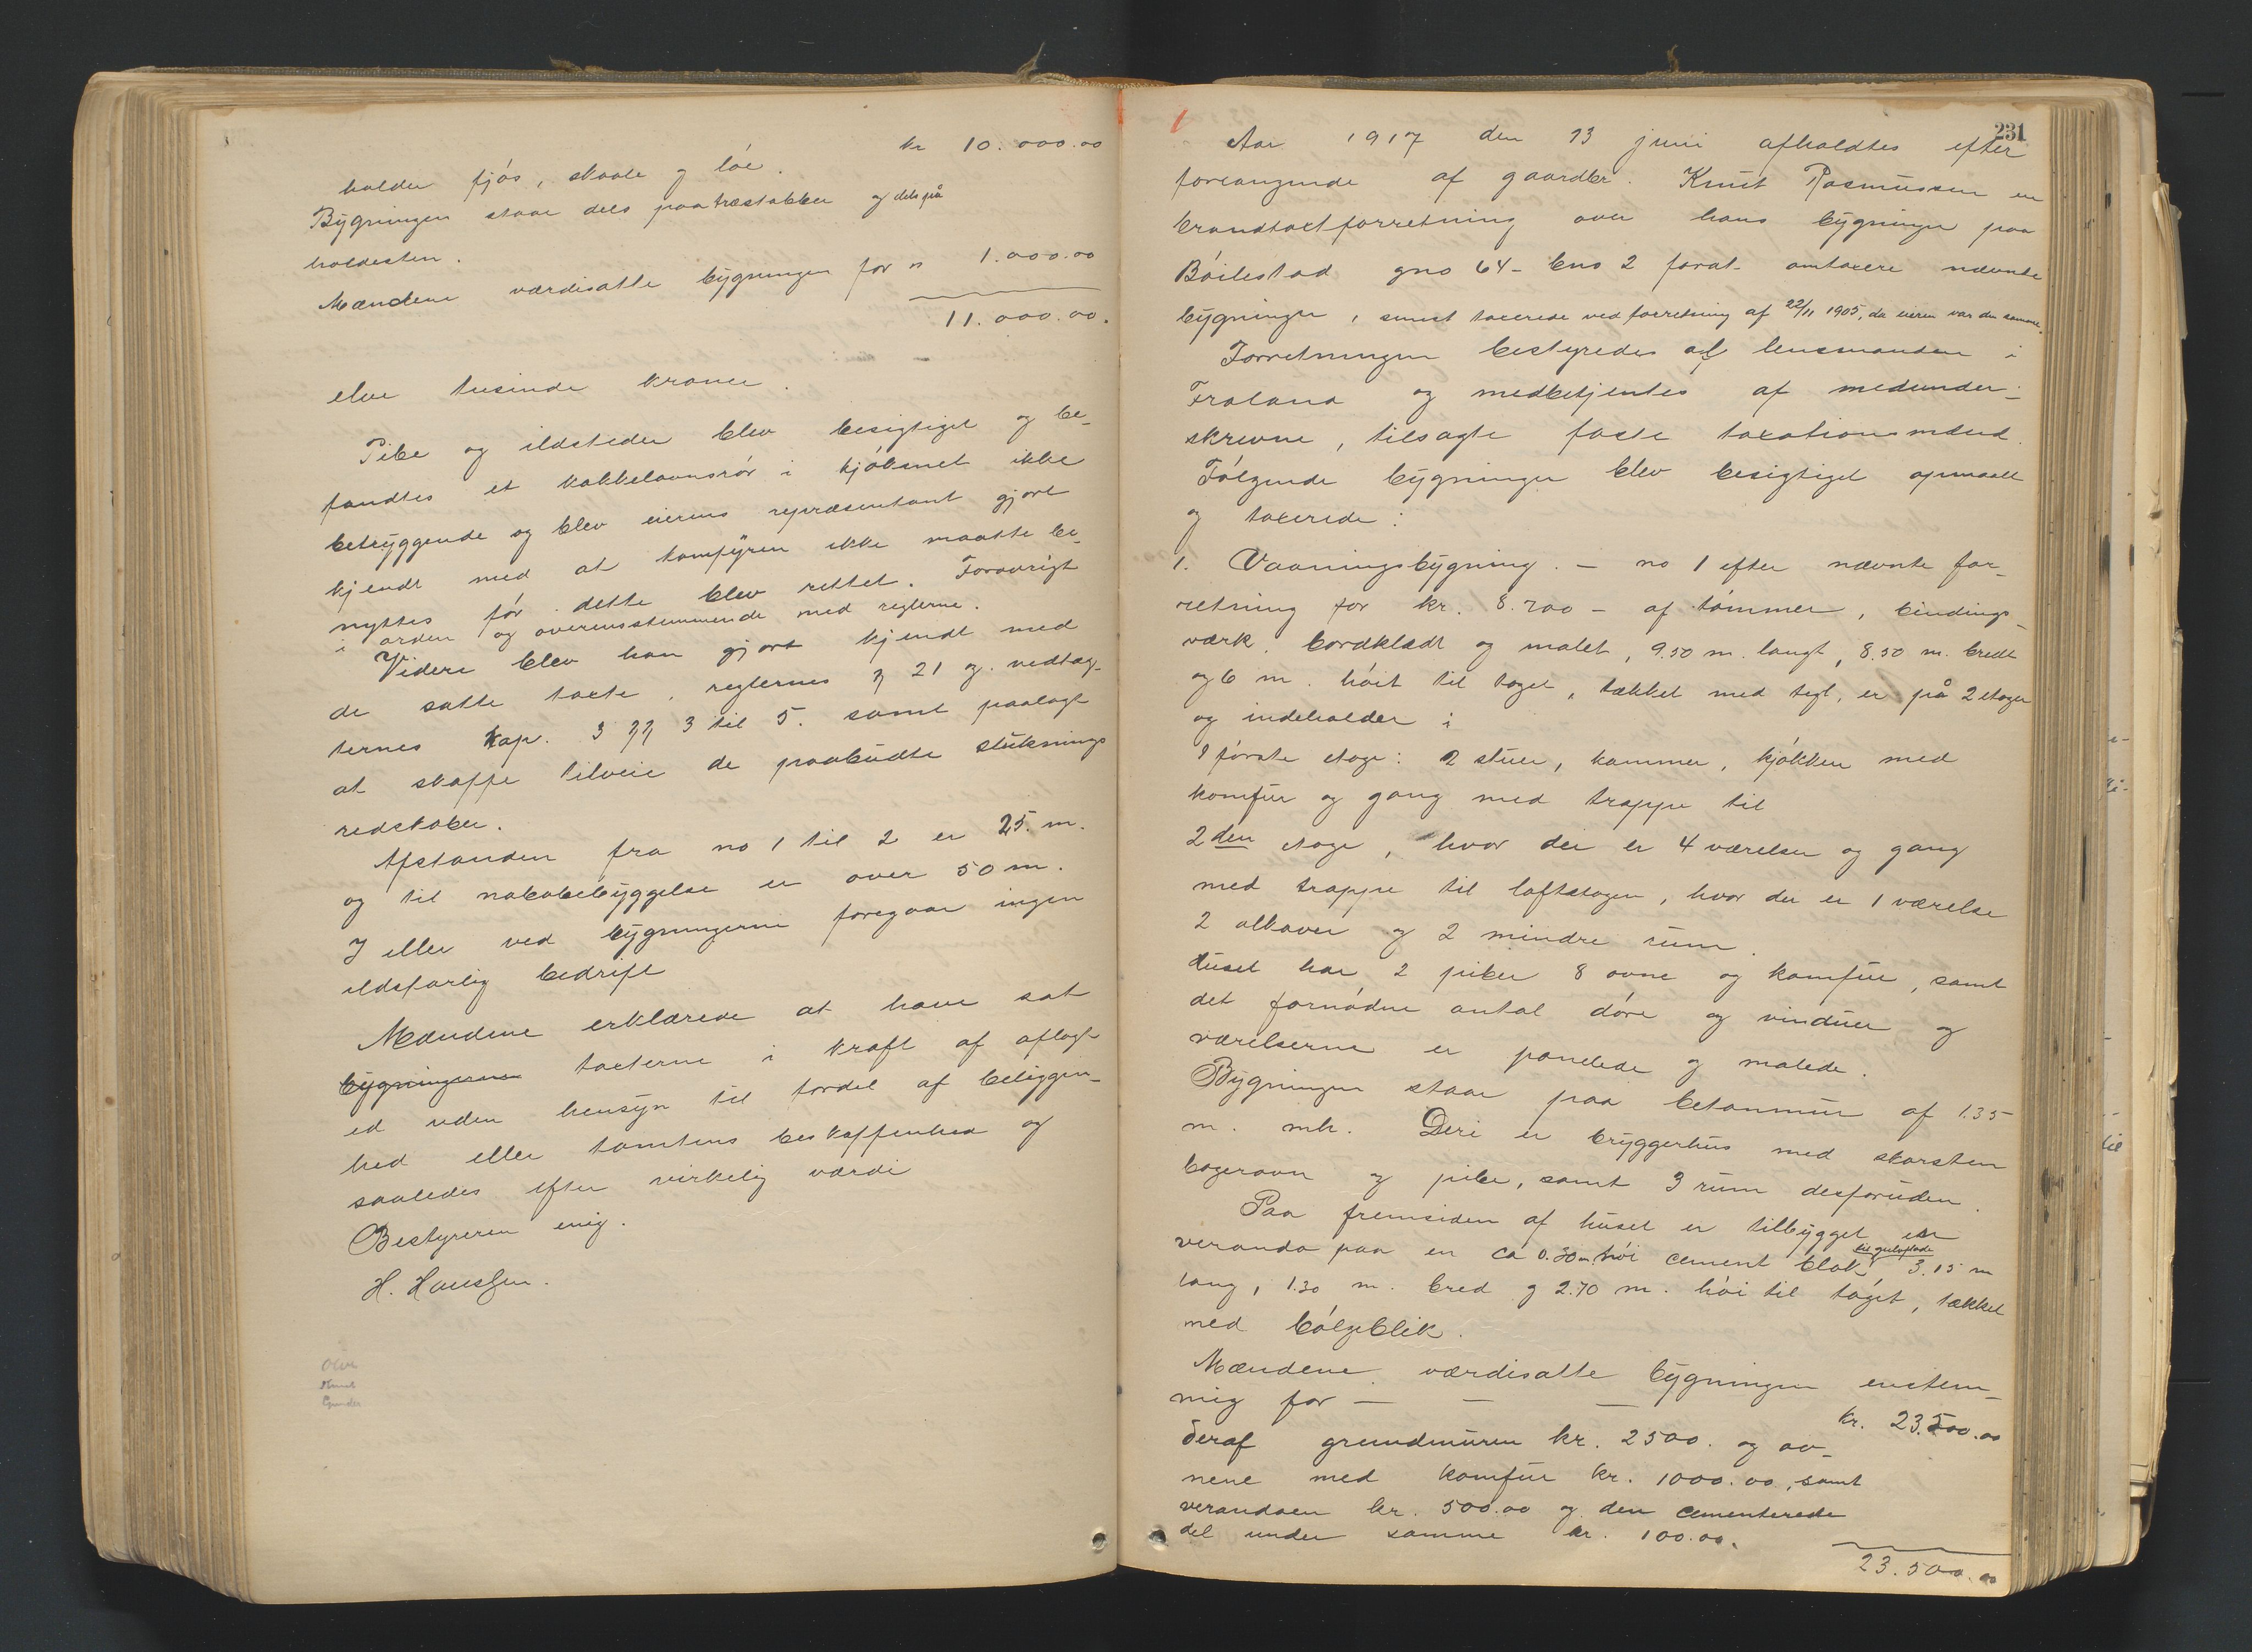 kr 10.000.00
holder fjøs, skaale og løe.
Bygningen staar dels paa træstabber og dels på
holdesten.
Mændene værdisatte bygningen for " 1.000.00
11.000.00.
elve tusinde kroner.
Pibe og ildsteder blev besigtiget og be-
fandtes et kakkelovnsrør i kjøkenet ikke
betryggende og blev eierens repræsentant gjort
kjendt med at komfyren ikke maatte be-
nyttes før dette blev rettet. Forøvrigt
i orden og overensstemmende med reglerne.
Videre blev han gjort kjendt med
de satte takte, reglernes § 21 og vedtæg-
ternes Kap. 3 §§ 3 til 5. samt paalagt
at skaffe tilveie de paabudte sluknings
redskaber.
Afstanden fra no 1 til 2 er 25. m.
og til nabobebyggelse er over 50 m.
I eller ved bygningerne foregaar ingen
ildsfarlig bedrift
Mændene erklærede at have sat
bygningerne taxterne i kraft af aflagt
ed uden hensyn til fordel af beliggen-
hed eller tomtens beskaffenhed og
saaledes efter virkelig værdi
Bestyreren enig.
H. Hanssen.
Olve
Knut
Gunder
1
231
Aar 1917 den 13 juni afholdtes efter
forlangende af gaardbr. Knut Rasmussen en
brandtaxtforretning over hans bygninger paa
Bøilestad gno 64 - bno 2 forat omtaxere nævnte
bygninger, senest taxerede ved forretning af 22/11 1905, da eieren var den samme.
Forretningen bestyredes af lensmanden i
Froland og medbetjentes af medunder-
skrevne, tilsagte faste taxationsmænd.
Følgende bygninger blev besigtiget opmaalt
og taxerede:
1. Vaaningsbygning. - no 1 efter nævnte for-
retning for kr. 8.700 - af tømmer, bindings-
værk, bordklædt og malet, 9.50 m. langt, 8.50 m. bredt
og 6 m. høit til taget, tækket med tegl, er på 2 etager
og indeholder i
I første etage: 2 stuer, kammer, kjøkken med
komfur og gang med trappe til
2den etage, hvor der er 4 værelser og gang
med trappe til loftetagen, hvor der er 1 værelse
2 alkover og 2 mindre rum.
Huset har 2 piber 8 ovne og komfur, samt
det fornødne antal døre og vinduer og
værelserne er panelede og malede.
Bygningen staar paa betonmur af 1.35
m. mh. Deri er bryggerhus med skorsten
bagerovn og pibe, samt 3 rum desforuden.
Paa fremsiden af huset er tilbygget en
veranda paa en ca 0.30 m. høi cement blok til gulvflade 3.15 m
lang, 1.30 m. bred og 2.70 m. høi til taget, tækket
med bølgeblik.
Mændene værdisatte bygningen enstem-
mig for - - - kr. 23.500.00
Deraf grundmuren kr. 2500. og ov-
nene med komfur kr. 1000.00, samt
verandaen kr. 500.00 og den cementerede
del under samme kr. 100.00.
23.500.00